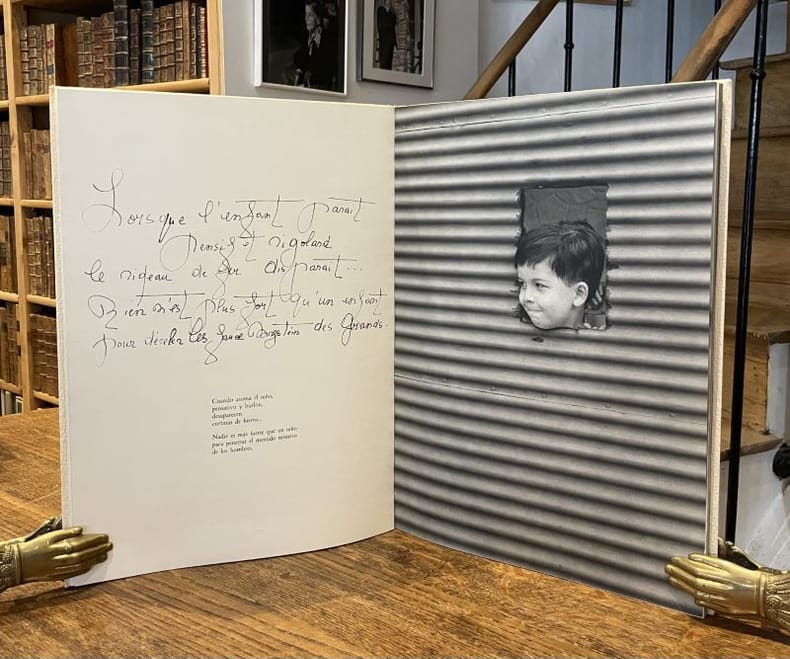 Lorsque l'enfant parait
Pensif et rigolard
le rideau de fer disparait...
Rien n'est plus fort qu'un enfant
pour déceler les faux mystères des Grands.
Cuando asoma el niño,
pensativo y burlón,
desaparecen
cortinas de hierro...
Nadie es más fuerte que un niño
para penetrar el mentido misterio
de los hombres.